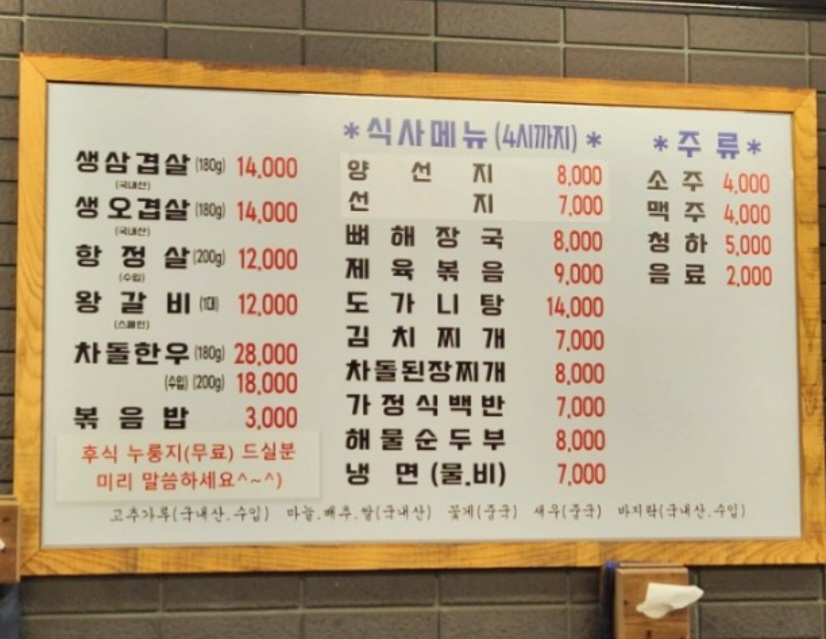 생삼겹살(180g) 14,000
(국내산)
생오겹살(180g) 14,000
(국내산)
항정살(200g) 12,000
(수입)
왕갈비(1대) 12,000
(스페인)
차돌한우(180g) 28,000
(수입)(200g) 18,000
볶음밥 3,000
후식 누룽지(무료) 드실분
미리 말씀하세요^~^)
*식사메뉴(4시까지)*
양선지 8,000
선지 7,000
뼈해장국 8,000
제육볶음 9,000
도가니탕 14,000
김치찌개 7,000
차돌된장찌개 8,000
가정식백반 7,000
해물순두부 8,000
냉면(물.비) 7,000
*주류*
소주 4,000
맥주 4,000
청하 5,000
음료 2,000
고추가루(국내산.수입) 마늘.배추.쌀(국내산) 꽃게(중국) 새우(중국) 바지락(국내산.수입)